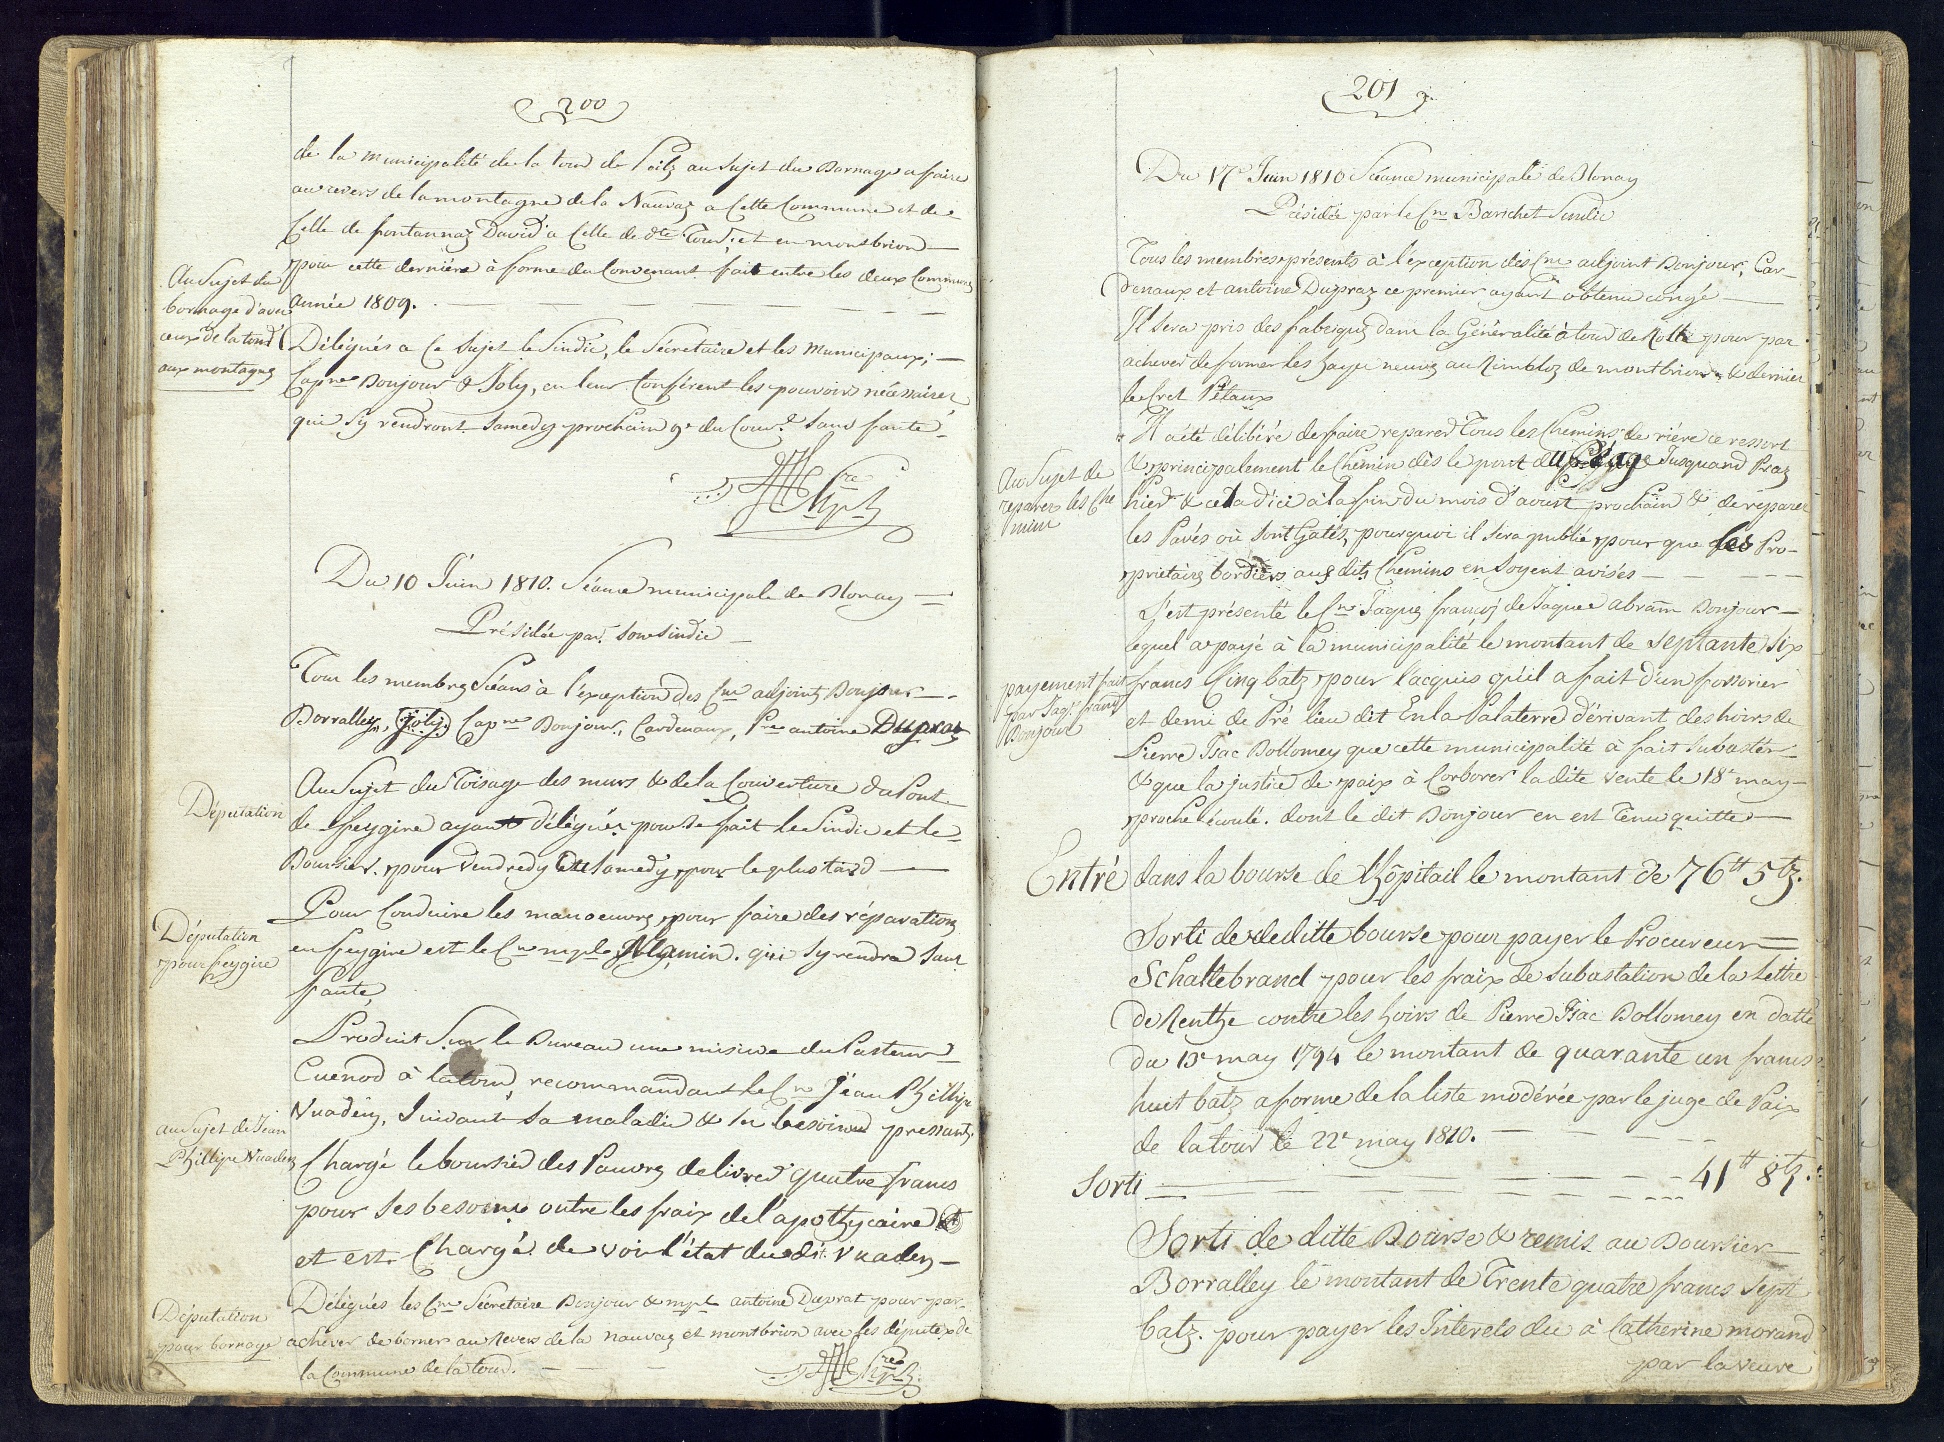 200
de la Municipalité de la tour de Peilz au Sujet du Bornage a faire
au revers de la montagne de la Nauvaz a Cette Commune et de
Celle de fontannaz David a Celle de dte Tour, et en montbrion
pour cette dernière à forme du Convenant fait entre les deux Communes
Au Sujet du
bornage d'avec
ceux de la tour
aux montagnes
année 1809.
Délégués a Ce Sujet le Sindic, le Sécretaire et les Municipaux;
Capne Bonjour & Joly, en leur Conférent les pouvoirs nécessaires
qui Sy rendront Samedy prochain 9e du Cour.t sans faute.
Du 10 Juin 1810. Séance municipale de Blonay
Présidée par son sindic
Tous les membres Séans à l'éxception des Cns adjoint Bonjour
Borralley, Joly, Capne Bonjour, Cardenaux, antoine Dupraz
Députation
Au Sujet du Toisage des murs & de la Couverture du Pont
de feygire ayant délégués pour se fait le Sindic et le
Boursier. pour vendredy ou Samedy pour le plus tard
Députation
pour feygire
Pour Conduire les manoeuvres pour faire des réparations
en feygire est le Cn mple Mamin. qui sy rendra sans
faute,
Produit Sur le Bureau une misive du Pasteur
Cuénod à latour, recommandant le Cn Jéan Phillipe
Vuadens, Suivant Sa maladie & Se besoins pressants,
au Sujet de Jéan
Phillipe Vuadens
Chargé le boursier des Pauvres delivrer quatre francs
pour Ses besoins outre les fraix de l'apothycaire
et est Chargé de voir l'état du dit Vuadens
Députation
pour bornage
Délégués les Cns Sécretaire Bonjour & mpl antoine Duprat pour par
achever de borner au Revers de la nauvaz et montbrion avec les députés de
la Commune de la tour.
201
Du 17e Juin 1810 Séance municipale de Blonay
Présidée par le Cn Barichet Sindic
Tous les membres présents à l'exception des Cns adjoint Bonjour, Car-
denaux et antoine Dupraz ce premier ayant obtenu congé
Il Sera pris des fabriques dans la Généralité à tour de Rolle pour par
achever de former les hayes neuves au Rimbloz de montbrion & dernier
le Cret Pélaux
Au Sujet de
reparer les Che
mins
Il a été délibéré de faire reparer Tous les Chemins de riére ce ressort
& principalement le Chemin dès le pont du Jusquand Praz
hier & cela d'ici à la fin du mois d'aoust prochain & de réparer
les Pavés où Sont Gatés, pourquoi il Sera publié pour que les Pro-
prietaires bordiers aux dits Chemins en Soyent avisés
S'est présenté le Cn Jaques françs de Jaques abram Bonjour
lequel a payé à la municipalité le montant de Septante Six
payement fait
par Jaqs frans
Bonjour
francs Cinq batz pour l'acquis qu'il a fait d'un fossorier
et demi de Pré lieu dit En la Palaterre dérivant des hoirs de
Pierre Isac Dollomey que cette municipalité à fait Subaster
& que la justice de paix à Corborer la dite vente le 18e may
proche écoulé. dont le dit Bonjour en est Tenu quitte
Entré dans la bourse de l'hôpitail le montant de 76 tt 5 tz.
Sorti de deditte bourse pour payer le Procureur
Schaltebrand pour les fraix de Subastation de la Lettre
de Renthe contre les hoirs de Pierre Isac Dollomey en datte
du 13e may 1794 le montant de quarante un francs
huit batz a forme de la liste modérée par le juge de Paix
de la tour le 22e may 1810.
Sorti 41 tt 8 tz.
Sorti de ditte Bourse & remis au Boursier
Borralley le montant de Trente quatre francs Sept
batz. pour payer les Interets du à Catherine morand
par la veuve